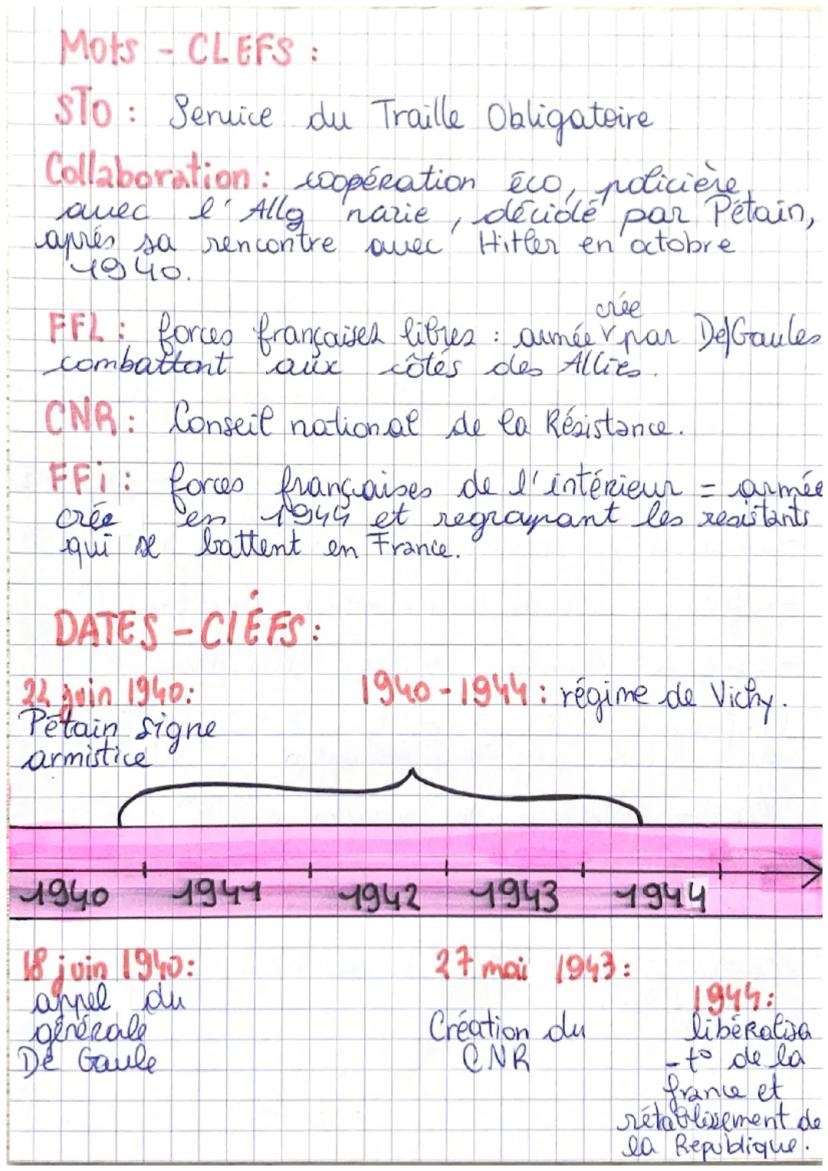 Mots - CLEFS :
STO : Service du Traille Obligatoire
Collaboration : coopération éco, policière,
avec l'Allg nazie, décidé par Pétain,
après sa rencontre avec Hitler en octobre
1940.
crée
FFL : forces françaises libres : armée v par De|Gaules
combattant aux côtés des Alliés.
CNR : Conseil national de la Résistance.
FFi : forces françaises de l'intérieur = armée
crée en 1944 et regroupant les resistants
qui se battent en France.
DATES - CLÉFS :
22 juin 1940 :
Pétain signe
armistice
1940 - 1944 : régime de Vichy.
1940 1941 1942 1943 1944
18 juin 1940 :
appel du
générale
De Gaule
27 mai 1943 :
Création du
CNR
1944 :
libéralisa
-t° de la
france et
rétablissement de
la Republique.